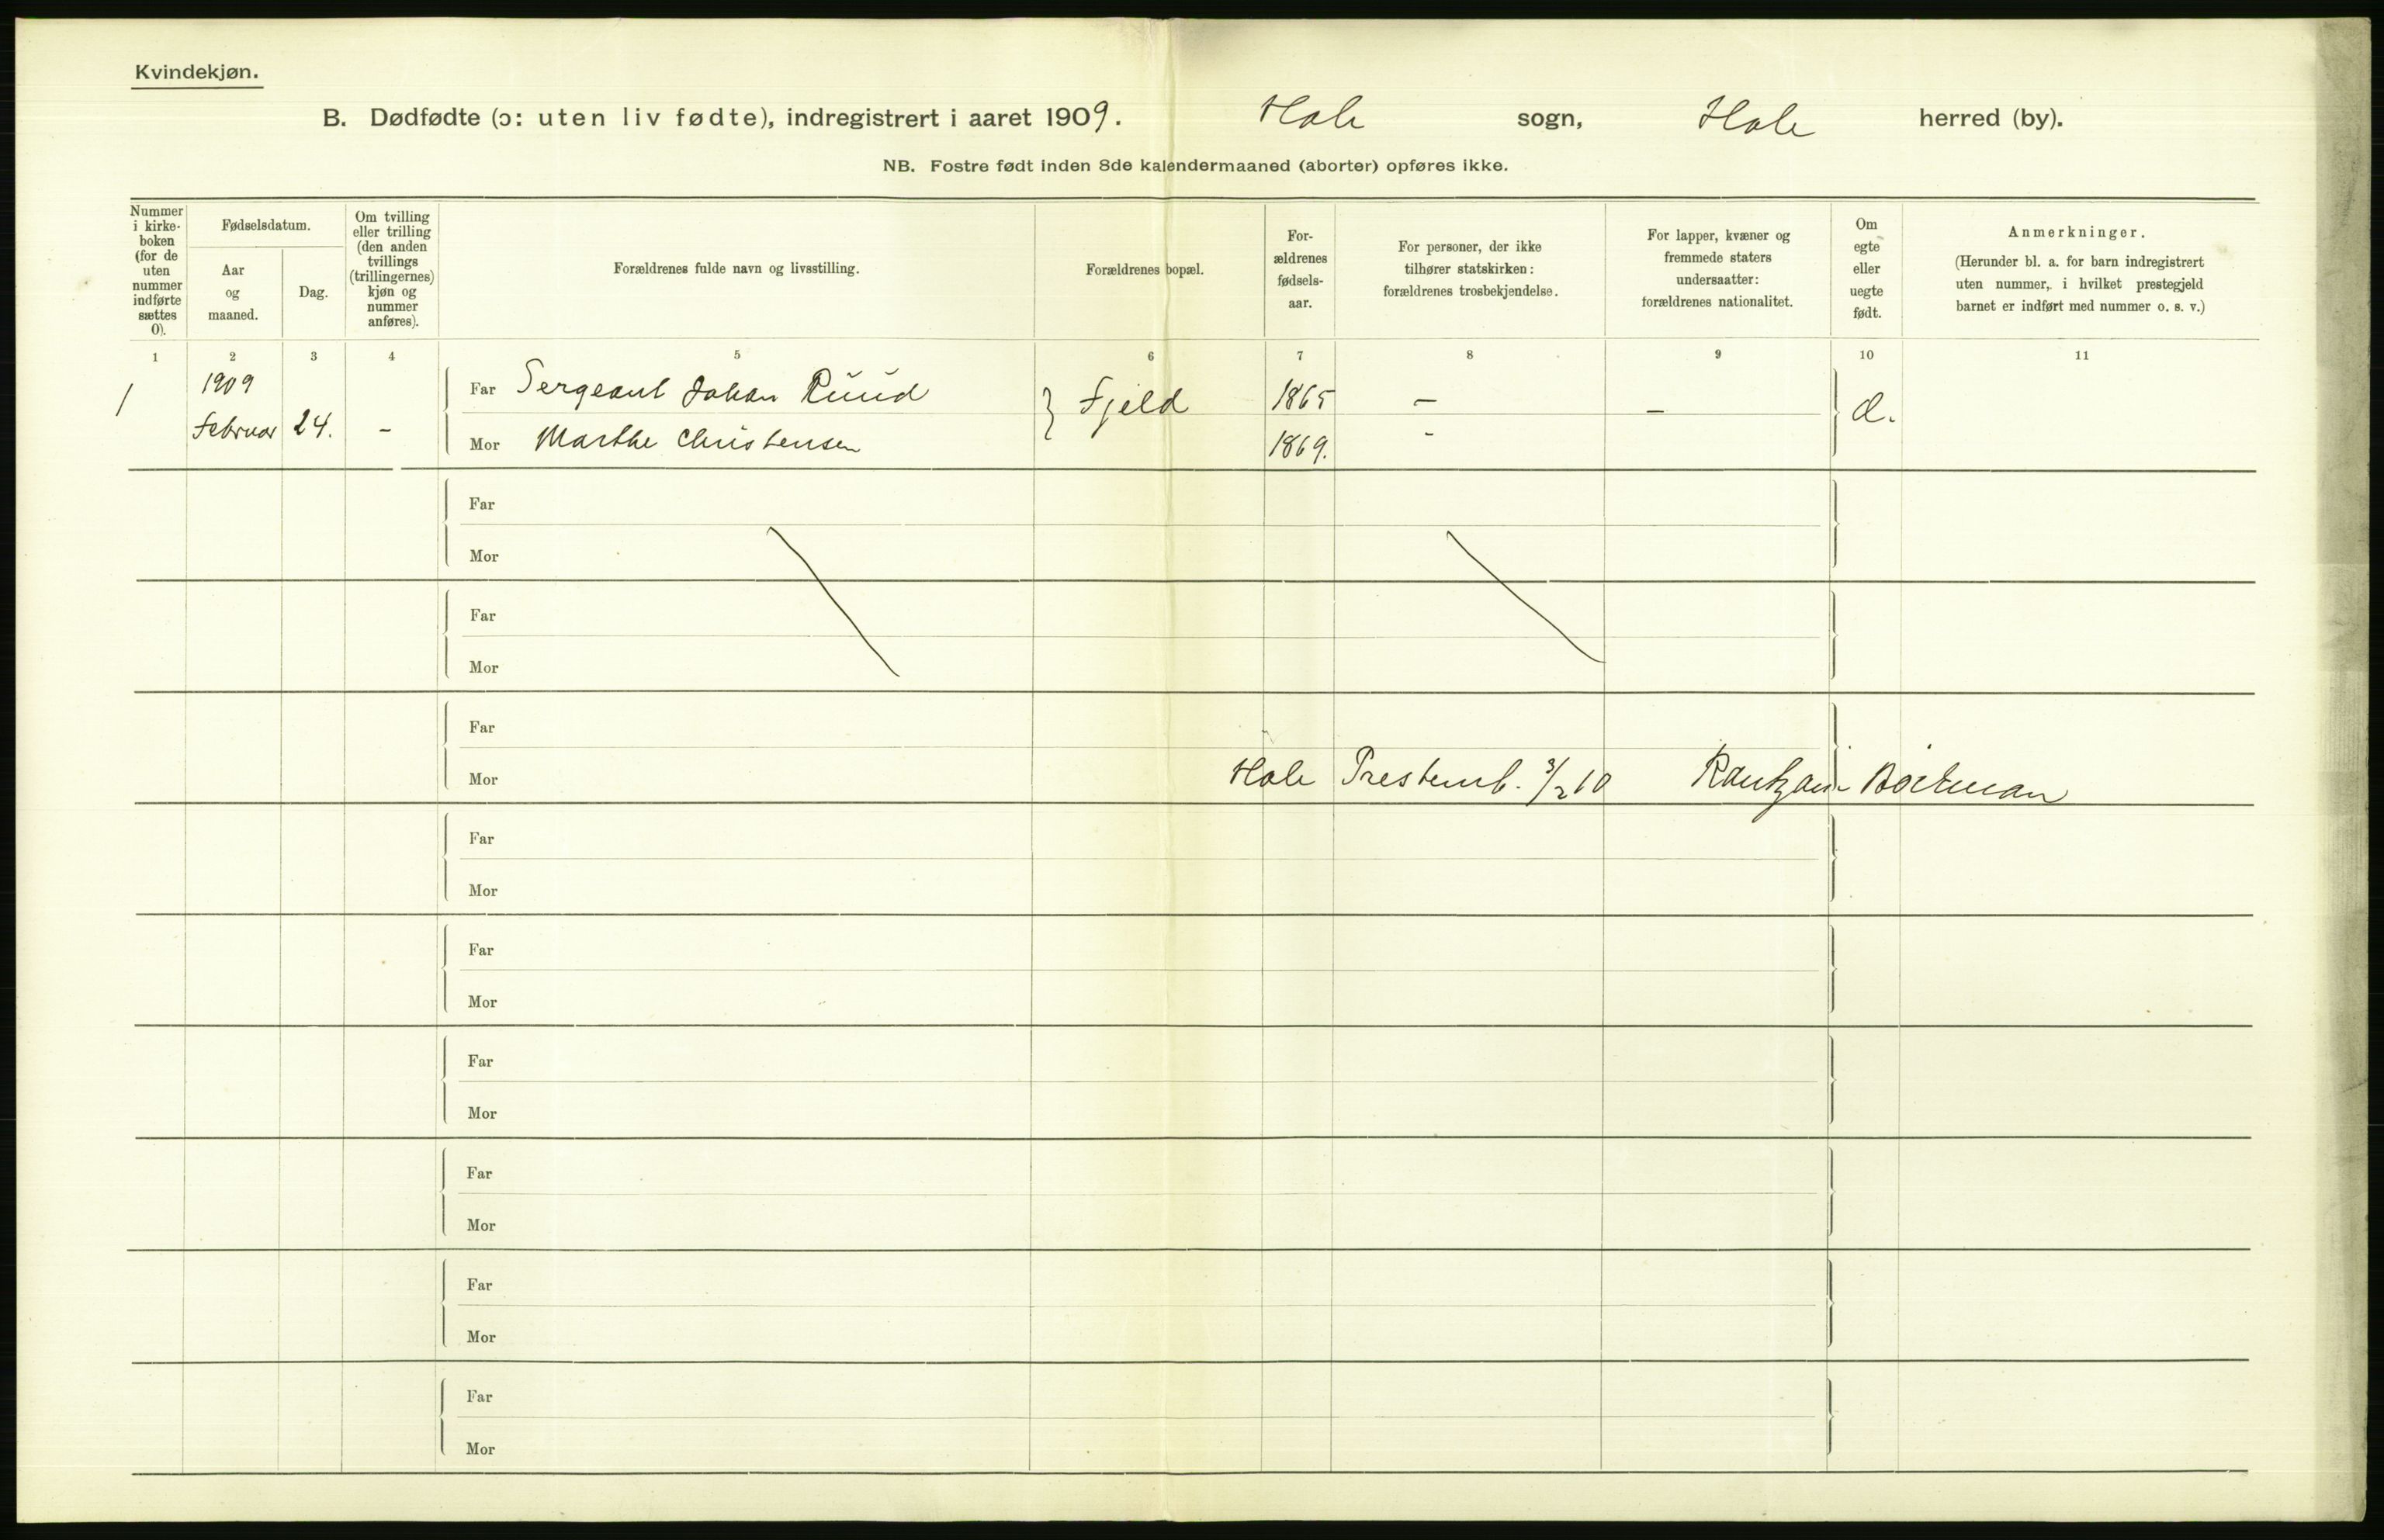 Kvindekjøn.
B. Dødfødte (ɔ: uten liv fødte), indregistrert i aaret 1909. Hole sogn, Hole herred (by).
NB. Fostre født inden 8de kalendermaaned (aborter) opføres ikke.
Nummer i kirke-boken (for de uten nummer indførte sættes 0).
Fødselsdatum.
Aar og maaned.
Dag.
Om tvilling eller trilling (den anden tvillings (trillingernes) kjøn og nummer anføres).
Forældrenes fulde navn og livsstilling.
Forældrenes bopæl.
For-ældrenes fødsels-aar.
For personer, der ikke tilhører statskirken: forældrenes trosbekjendelse.
For lapper, kvæner og fremmede staters undersaatter: forældrenes nationalitet.
Om egte eller uegte født.
Anmerkninger.
(Herunder bl. a. for barn indregistrert uten nummer, i hvilket prestegjeld barnet er indført med nummer o. s. v.)
1 2 3 4 5 6 7 8 9 10 11
1 1909 Februar 24. -
Far Sergeant Johan Ruud } Fjeld 1865 - -
Mor Marthe Christensen 1869. -
Far
Mor
Far
Mor
Far
Mor Hole Prestemb. 3/2 10
Far
Mor
Far
Mor
Far
Mor
Far
Mor
Far
Mor
Far
Mor